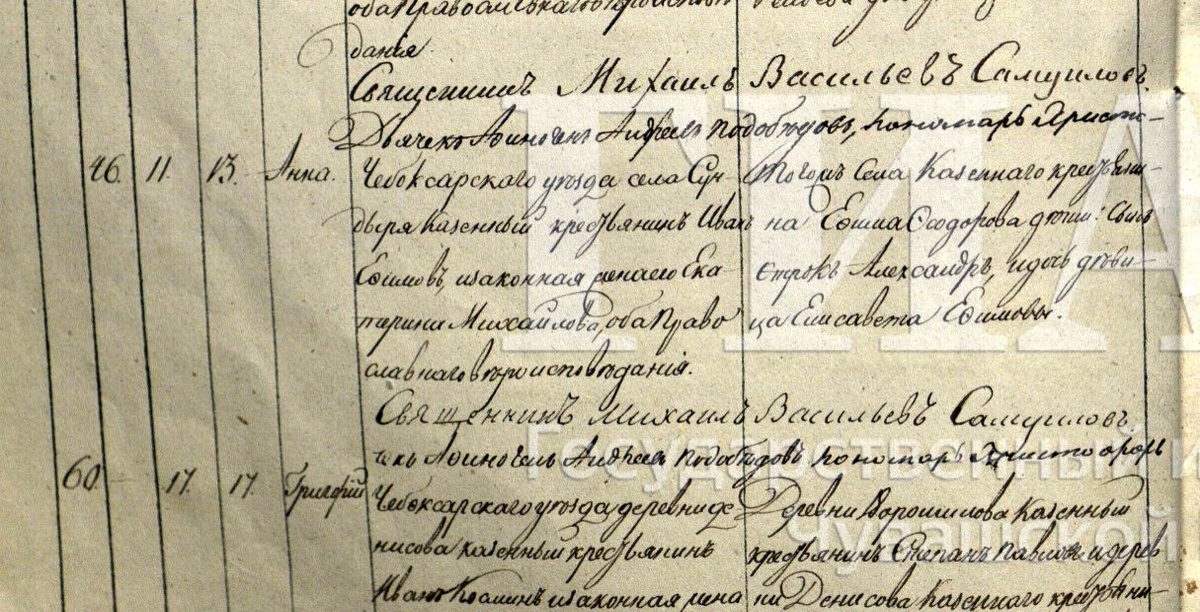 данія
Священникъ Михаилъ Васильевъ Самуиловъ
Дьячекъ Андрей Подобѣдовъ, пономарь
46. 11. 13. Анна. Чебоксарскаго уѣзда села Сун- Тогожъ Села Казеннаго крестьяни-
дыря казенный крестьянинъ Иванъ на Ефима Ѳеодорова дѣти: Сынъ
Ефимовъ, и законная жена его Ека- Александръ, и дочь дѣви-
терина Михайлова, оба Право- ца Елисавета Ефимовы.
славнаго вѣроисповѣданія.
Священникъ Михаилъ Васильевъ Самуиловъ
Андрей Подобѣдовъ пономарь Христофоръ
60 17. 17. Григорій Чебоксарскаго уѣзда деревни Де- Деревни Ворошилова Казенный
нисова казенный крестьянинъ крестьянинъ Степанъ Павловъ и дерев
Иванъ и законная жена ни Денисова Казеннаго крестьяни-
ГИА
Государственный и
Чувашской